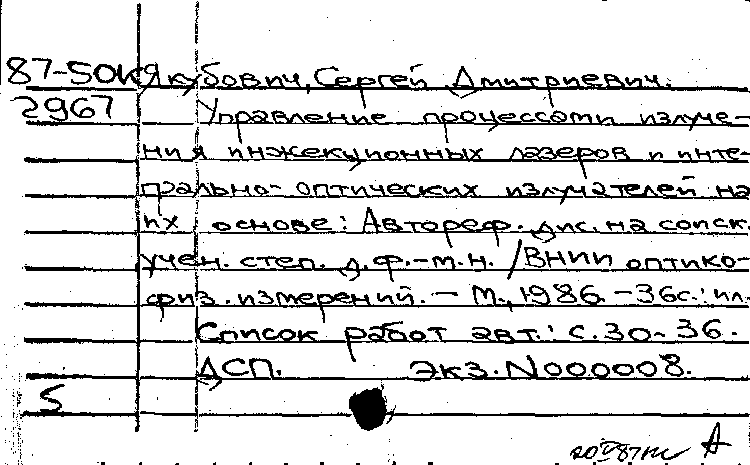 87-50к Якубович, Сергей Дмитриевич.
2967 Управление процессами излуче-
ния инжекционных лазеров и инте-
грально-оптических излучателей на
их основе: Автореф. дис. на соиск.
учен. степ. д.ф.-м.н. /ВНИИ оптико-
физ. измерений. - М., 1986. - 36с.: ил.
Список работ авт.: с.30-36.
ДСП. Экз.N000008.
5
А